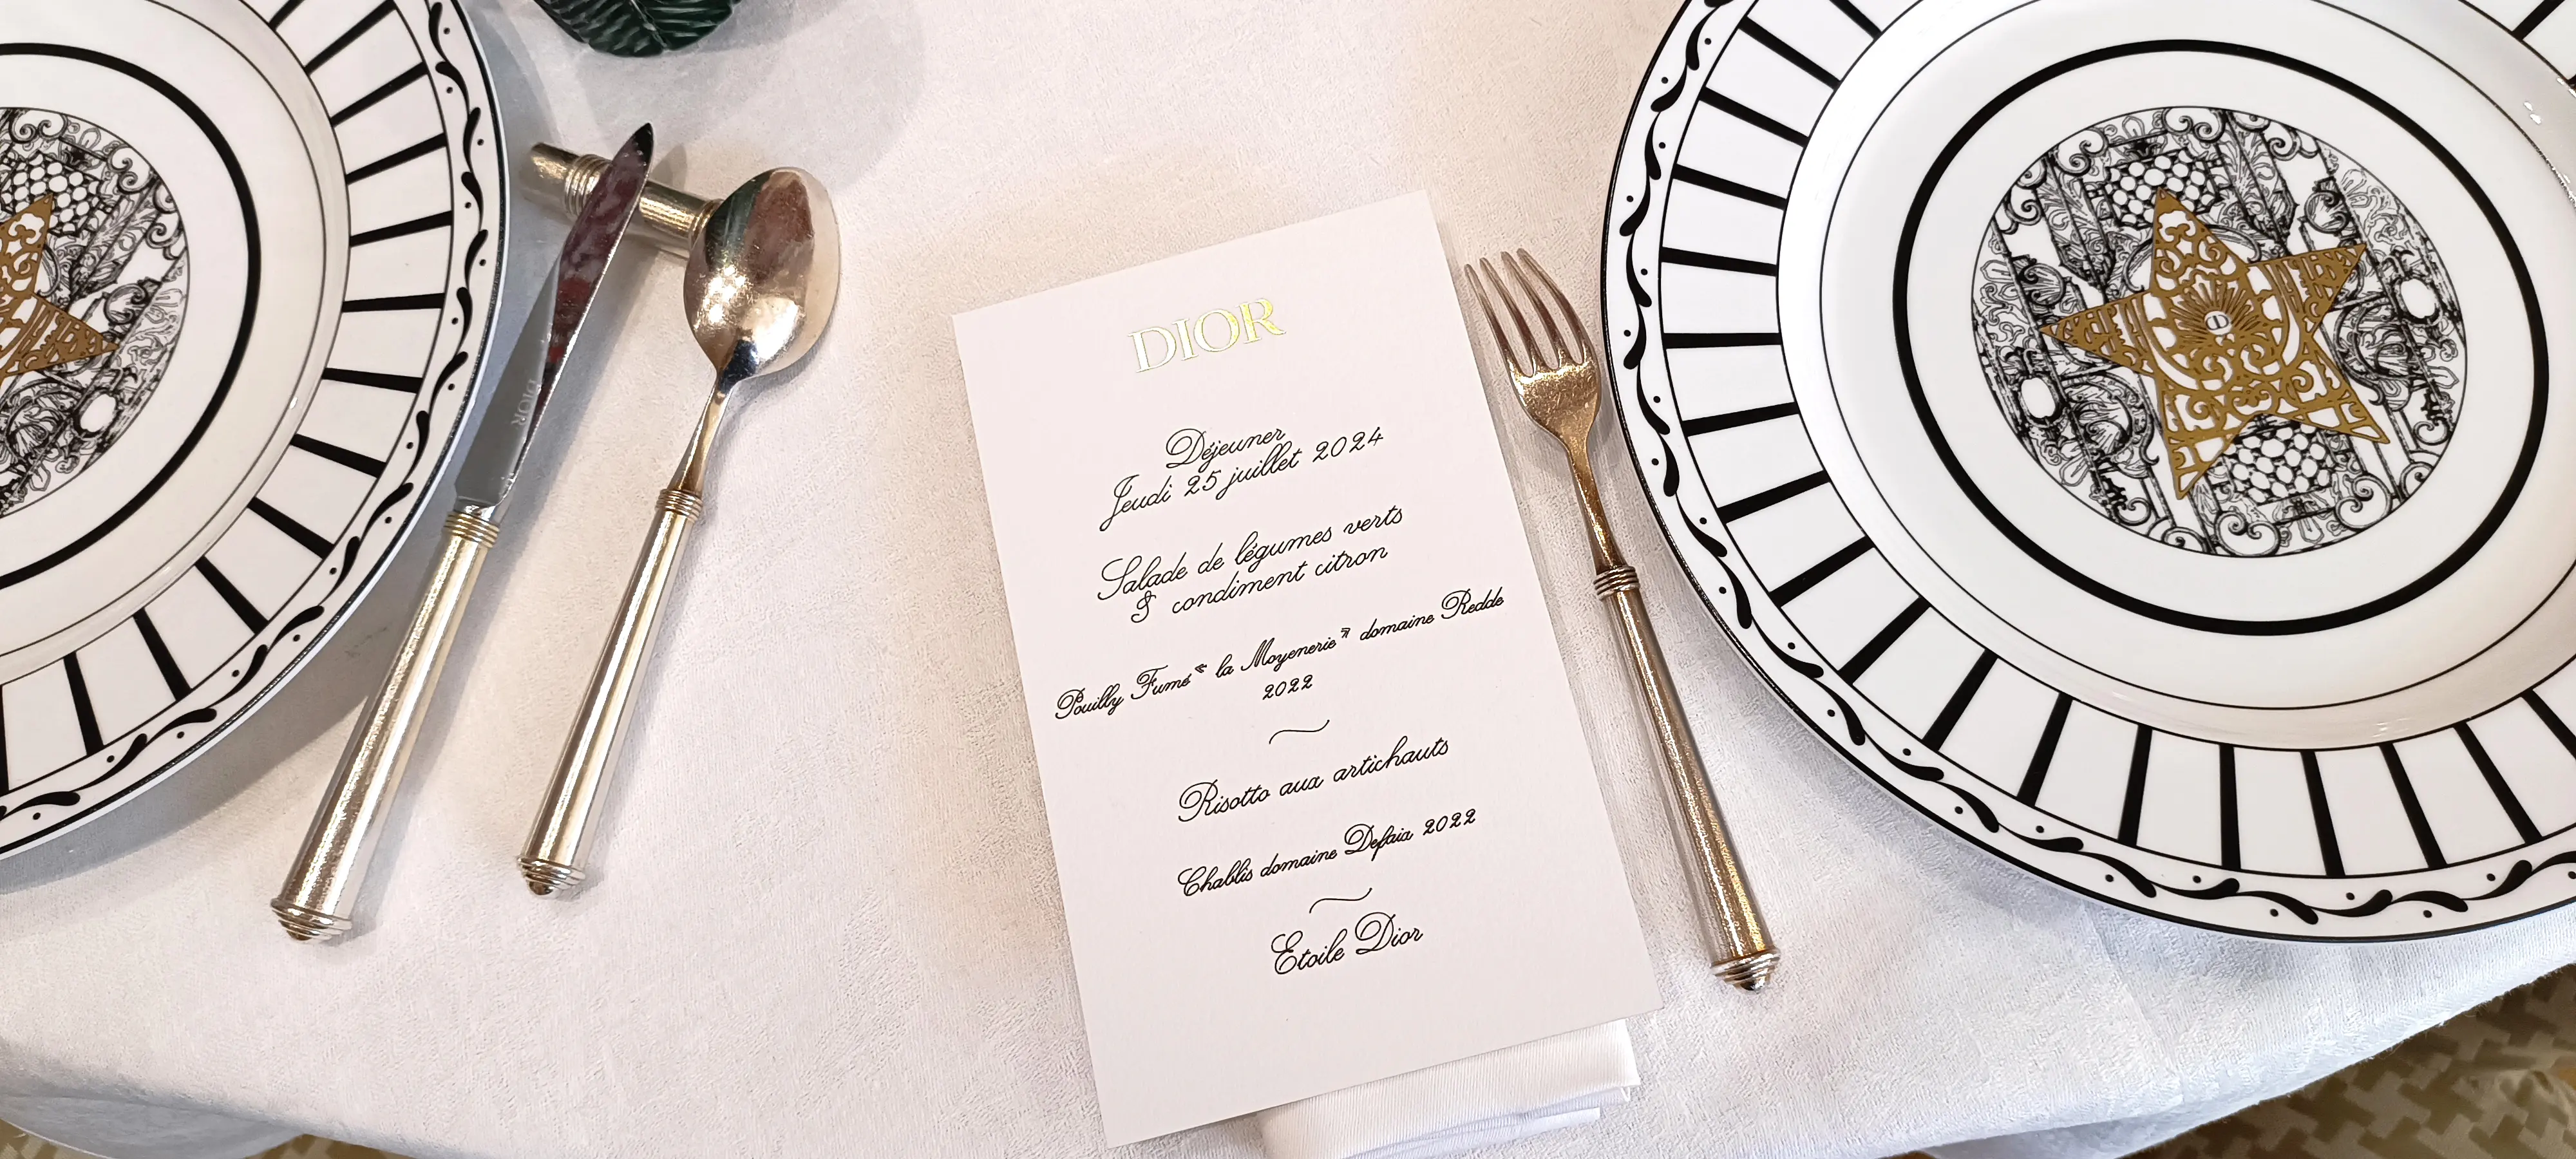 DIOR
DIOR
Déjeuner
Jeudi 25 juillet 2024
Salade de légumes verts
& condiment citron
Pouilly Fumé « la Moyenerie » domaine Redde
2022
Risotto aux artichauts
Chablis domaine Defaix 2022
Etoile Dior